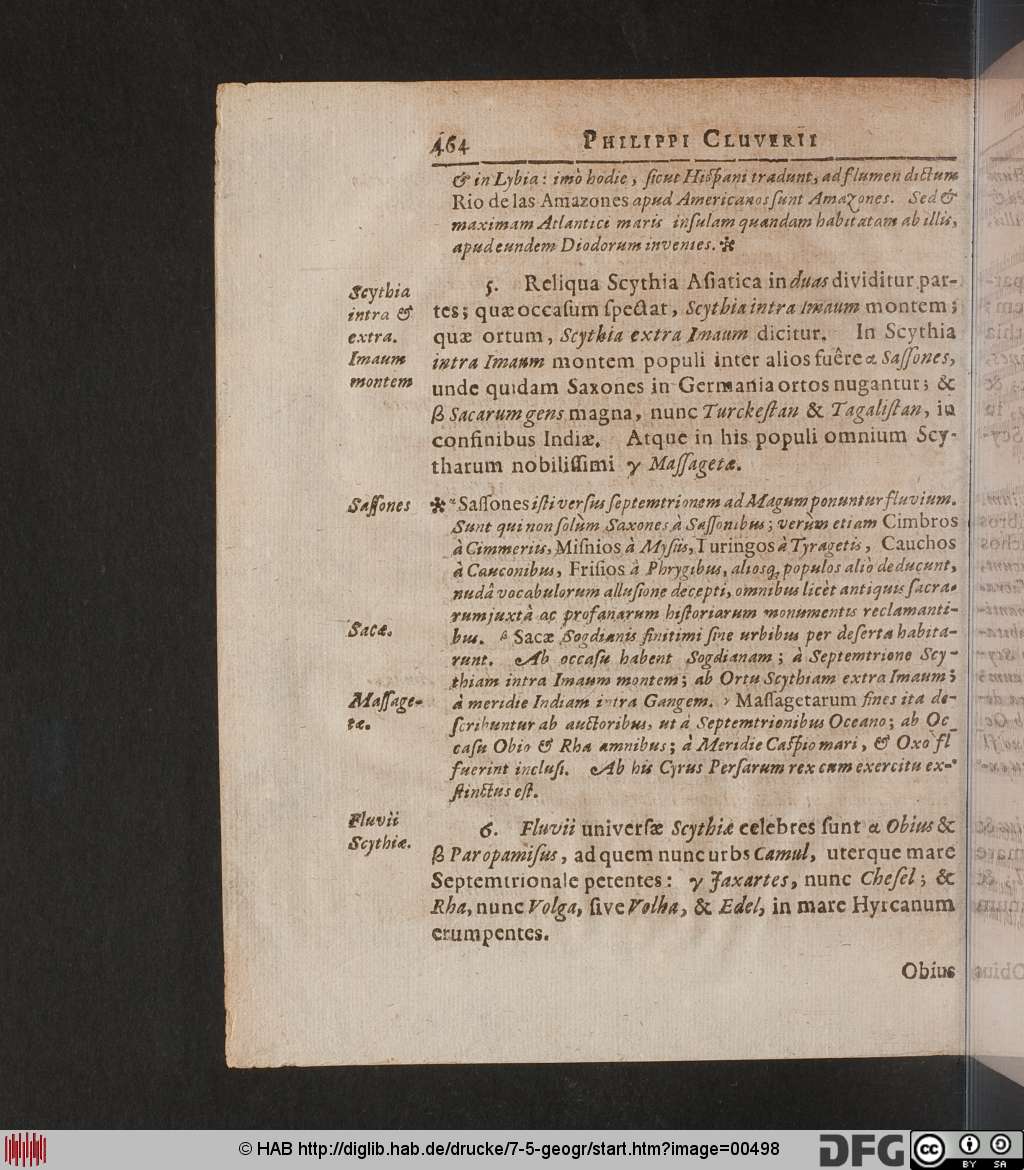 464 PHILIPPI CLUVERII
& in Lybia: imò hodie, ſicut Hiſpani tradunt, ad flumen dictum
Rio de las Amazones apud Americanos ſunt Amazones. Sed &
maximam Atlantici maris inſulam quandam habitatam ab illis,
apud eundem Diodorum invenies.*
Scythia
intra &
extra.
Imaum
montem
5. Reliqua Scythia Aſiatica in duas dividitur par-
tes; quæ occaſum ſpectat, Scythia intra Imaum montem;
quæ ortum, Scythia extra Imaum dicitur. In Scythia
intra Imaum montem populi inter alios fuêre α Saſſones,
unde quidam Saxones in Germania ortos nugantur; &
β Sacarum gens magna, nunc Turckeſtan & Tagaliſtan, in
confinibus Indiæ. Atque in his populi omnium Scy-
tharum nobiliſſimi γ Maſſagetæ.
Saſſones
* α Saſſones iſti verſus ſeptemtrionem ad Magum ponuntur fluvium.
Sunt qui non ſolùm Saxones à Saſſonibus; verùm etiam Cimbros
à Cimmeriis, Miſnios à Myſiis, Turingos à Tyragetis, Cauchos
à Cauconibus, Friſios à Phrygibus, aliosq; populos aliò deducunt,
nudâ vocabulorum alluſione decepti, omnibus licèt antiquis ſacra-
rum juxtà ac profanarum hiſtoriarum monumentis reclamanti-
Sacæ.
bus. β Sacæ Sogdianis finitimi ſine urbibus per deſerta habita-
runt. Ab occaſu habent Sogdianam; à Septemtrione Scy-
thiam intra Imaum montem; ab Ortu Scythiam extra Imaum;
Maſſage-
tæ.
à meridie Indiam intra Gangem. γ Maſſagetarum fines ita de-
ſcribuntur ab auctoribus, ut à Septemtrionibus Oceano; ab Oc-
caſu Obio & Rha amnibus; à Meridie Caſpio mari, & Oxo fl
fuerint incluſi. Ab his Cyrus Perſarum rex cum exercitu ex-
ſtinctus eſt.
Fluvii
Scythiæ.
6. Fluvii univerſæ Scythiæ celebres ſunt α Obius &
β Paropamiſus, ad quem nunc urbs Camul, uterque mare
Septemtrionale petentes: γ Jaxartes, nunc Cheſel; &
Rha, nunc Volga, ſive Volha, & Edel, in mare Hyrcanum
erumpentes.
Obius
© HAB http://diglib.hab.de/drucke/7-5-geogr/start.htm?image=00498
DFG
cc
BY SA